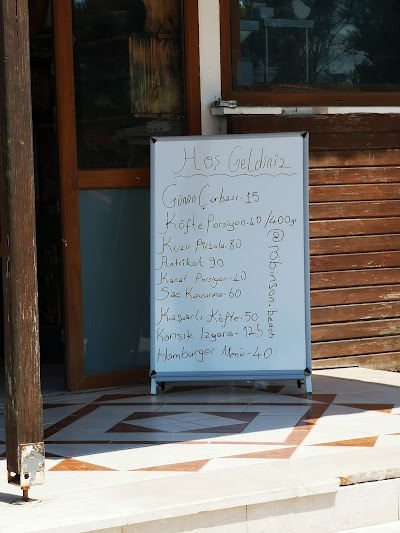 Hoş Geldiniz
Günün Çorbası-15
Köfte Porsiyon-40/400gr
Kuzu Pirzola-80
Antrikot-90
Kanat Porsiyon-40
Saç Kavurma-60
Kaşarlı Köfte-50
Karışık Izgara-125
Hamburger Menü-40
@robinson.beach